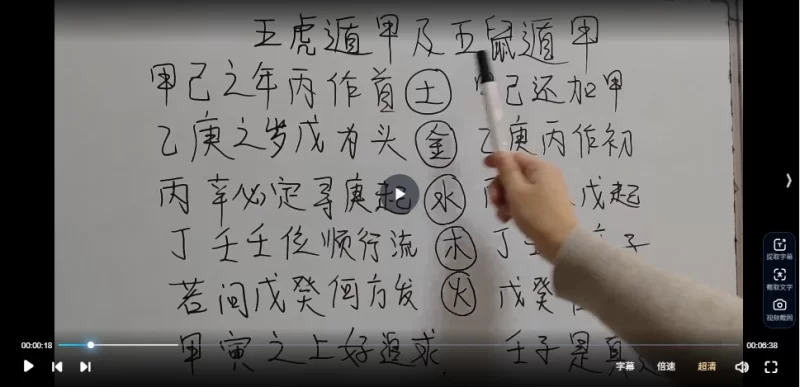 五虎遁甲及五鼠遁甲
甲己之年丙作首 土 己还加甲
乙庚之岁戊为头 金 乙庚丙作初
丙辛必定寻庚起 水 戊起
丁壬壬位顺行流 木 丁 子
若问戊癸何方发 火 戊癸
甲寅之上好追求 壬子是真
提取字幕
截取文字
视频截图
00:00:18
00:06:38
字幕 倍速 超清